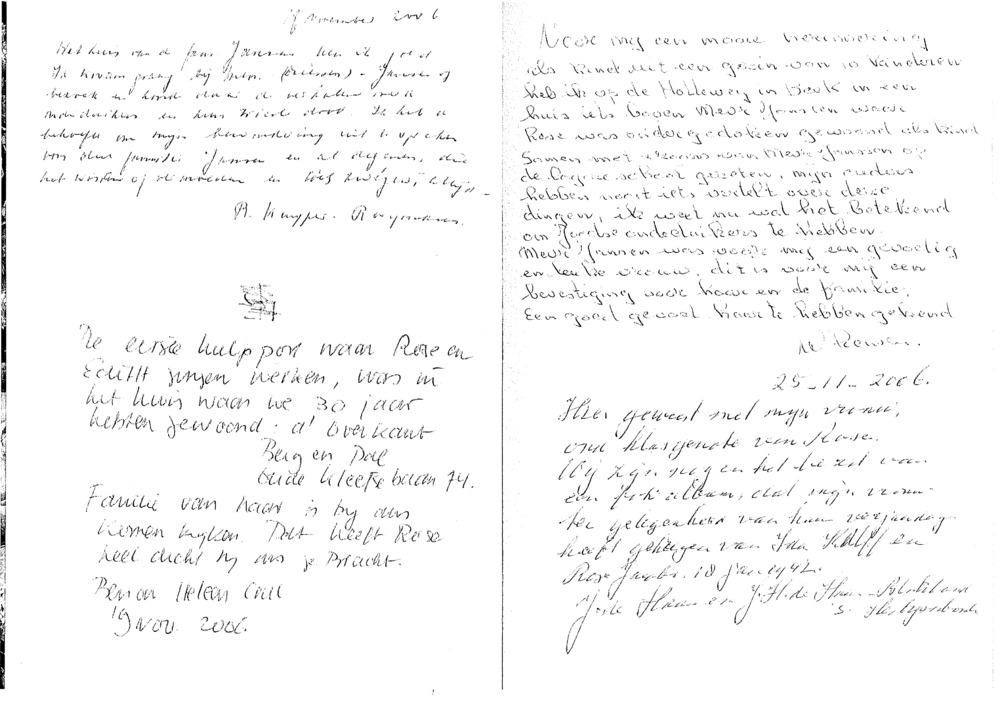 november 2006
Het huis van de fam Jansen ken ik goed
Ik kwam graag bij mevr. - Jansen op
bezoek en hoorde daar de verhalen over
onderduikers en hun wrede dood. Ik heb de
behoefte om mijn bewondering uit te spreken
voor deze familie Jansen en al degenen, die
het
A. Kuyper-
De eerste hulppost waar Rose en
Edith gingen werken, was in
het huis waar we 30 jaar
hebben gewoond: d' Overkant
Berg en Dal
Oude Kleefsebaan 74.
Familie van haar is bij ons
komen kijken. Dat heeft Rose
heel dicht bij ons gebracht.
Ben en Heleen
19 nov. 2006.
Voor mij een mooie herinnering
als kind uit een gezin van 10 kinderen
heb ik op de Holleweg in Beek in een
huis iets boven Mevr Janssen waar
Rose was ondergedoken gewoond als kind
Samen met van Mevr Janssen op
de school gezeten, mijn ouders
hebben nooit iets verteld over deze
dingen, ik weet nu wat het betekend
om Joodse onderduikers te hebben.
Mevr Jansen was voor mij een gevoelig
en leuke vrouw, dit is voor mij een
bevestiging voor haar en de familie,
Een goed gevoel haar te hebben gekend
25-11-2006.
Hier geweest met mijn vrouw,
oud klasgenote van Rose.
Wij zijn nog in het bezit van
een fotoalbum, dat mijn vrouw
ter gelegenheid van haar verjaardag
heeft gekregen van Ida Kalff en
Rose Jacobs. 18 jan 1942.
J. de Haan en J.H. de Haan-